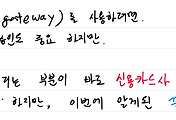 gateway)를 사용하려면.
인도 중요 하지만.
는 부분이 바로 신용카드사
하지만, 이번에 알게된